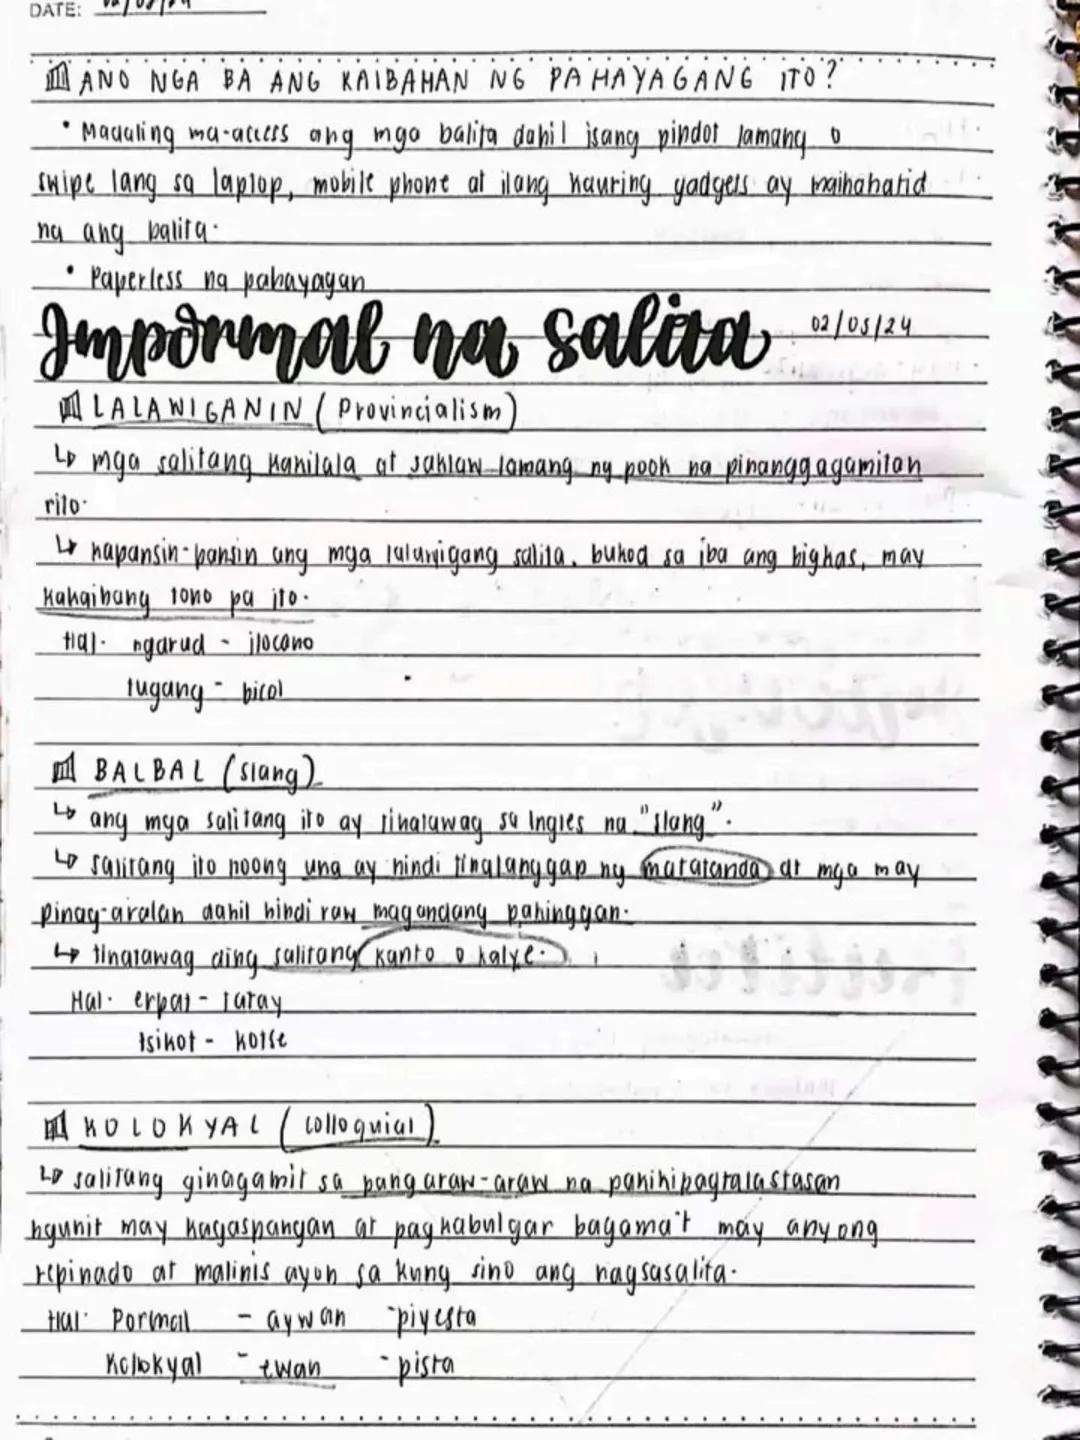 DATE: 02/05/24
ANO NGA BA ANG KAIBAHAN NG PAHAYAGANG ITO?
• Madaling ma-access ang mga balita dahil isang pindot lamang o
swipe lang sa laptop, mobile phone at ilang kauring gadgets ay maihahatid
na ang balita.
• Paperless na pahayagan
Impormal na salita 02/05/24
LALAWIGANIN (Provincialism)
↳ mga salitang kakilala at saklaw lamang ng pook na pinanggagamitan
rito.
↳ kapansin-pansin ang mga lalawigang salita, bukod sa iba ang bigkas, may
kakaibang tono pa ito.
Hal. ngarud - ilocano
tugang - bicol
BALBAL (slang)
↳ ang mga salitang ito ay tinatawag sa Ingles na "slang".
↳ salitang ito noong una ay hindi tinatanggap ng matatanda at mga may
pinag-aralan dahil hindi raw magandang pakinggan.
↳ tinatawag ding salitang kanto o kalye.
Hal. erpat - tatay
tsikot - kotse
KOLOKYAL (colloquial)
↳ salitang ginagamit sa pang araw-araw na pakikipagtalastasan
ngunit may kagaspangan at pagkabulgar bagama't may anyong
repinado at malinis ayon sa kung sino ang nagsasalita.
Hal. Pormal - aywan - piyesta
Kolokyal - ewan - pista